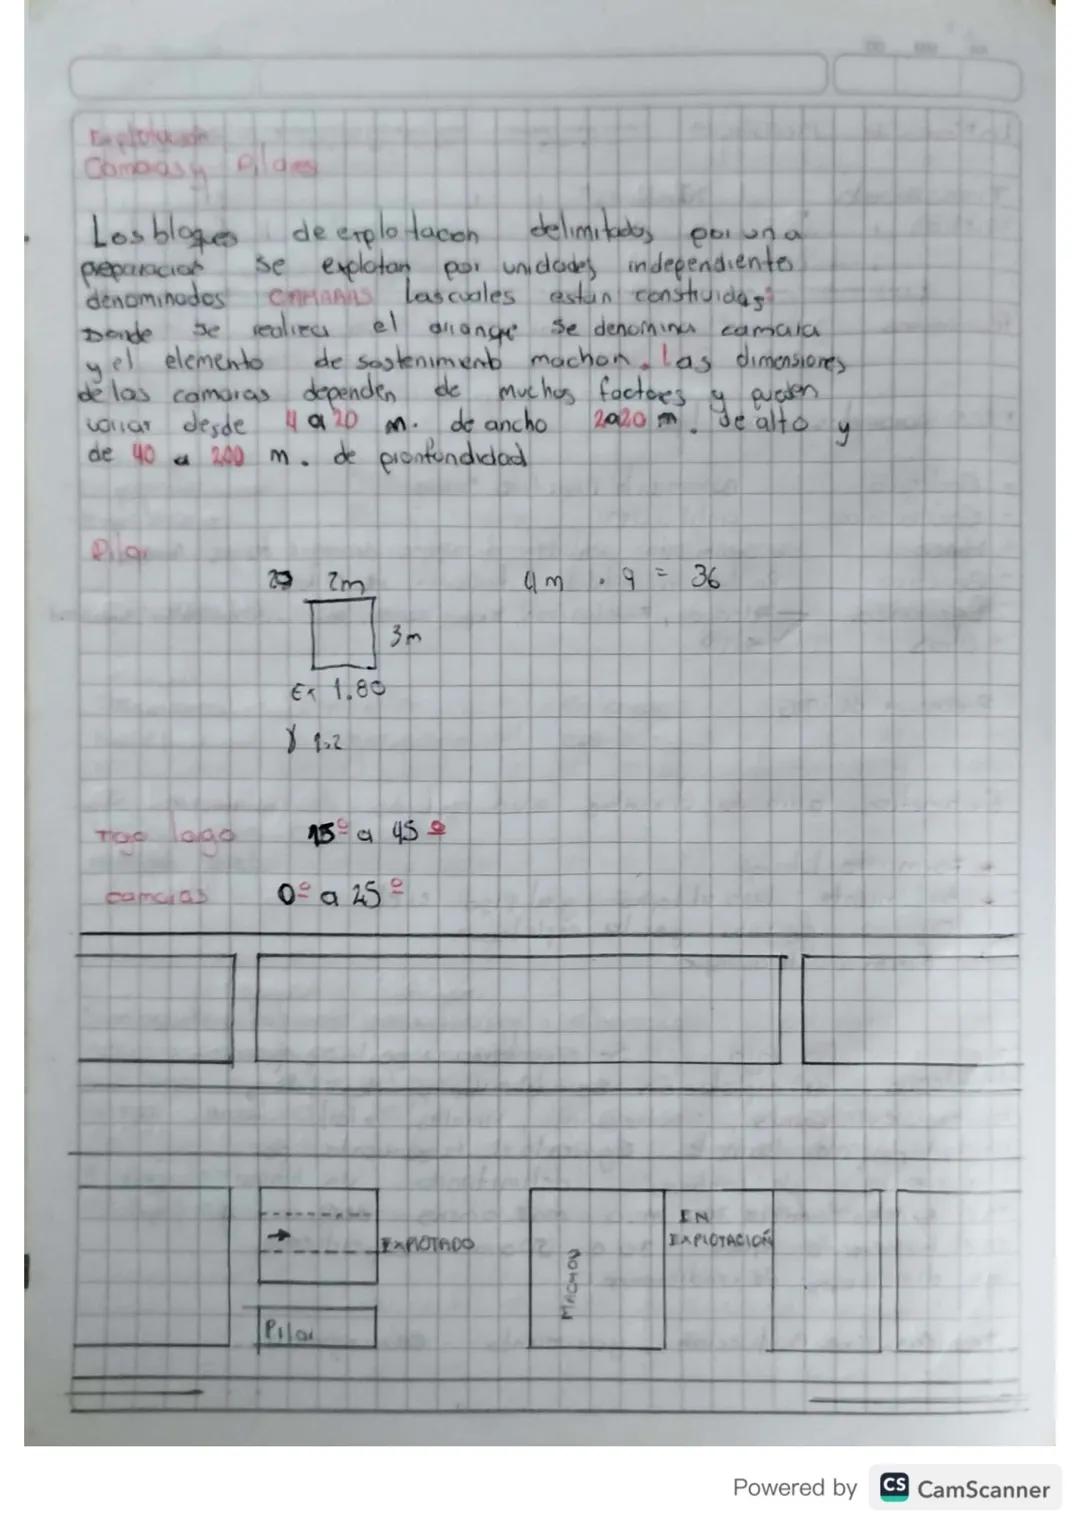 Explotacion
Camaras y Pilares
Los bloques de explotacon delimitados por una
preparacion se explotan por unidades independiente
denominados CAMARAS las cuales estan construidas:
Donde se realiza el arranqe se denomina camara
y el elemento de sostenimento machon. las dimensiones
de las camaras dependen de muchos factores y pueden
variar desde 4 a 20 m. de ancho 2a20 m. de alto y
de 40 a 200 m. de pronfundidad
Pilar
2m 4m . 9 = 36
3m
1.80
γ 1.2
Tajo largo 15º a 45º
camaras 0º a 25º
EN
EXPLOTADO EXPLOTACIÓN
MACHON
Pilar
Powered by CS CamScanner